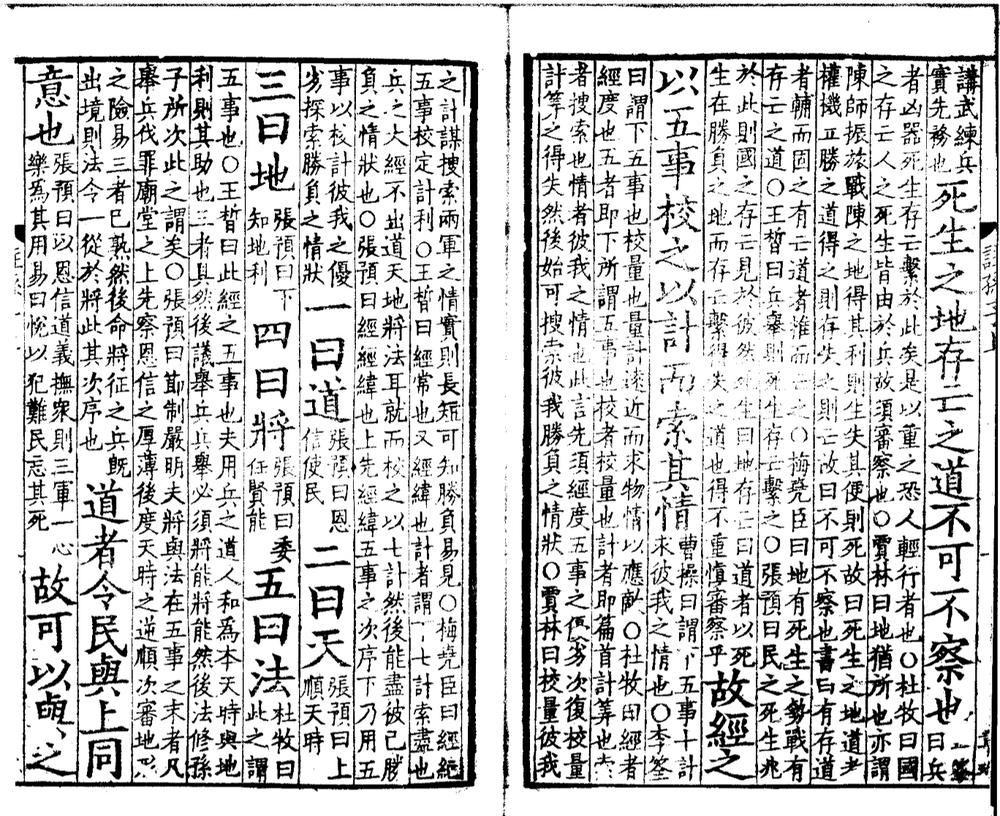 講武練兵
實先務也
死生之地存亡之道不可不察也
曰兵
者凶器死生存亡繫於此矣是以重之恐人輕行者也○杜牧曰國
之存亡人之死生皆由於兵故須審察也○賈林曰地猶所也亦謂
陳師振旅戰陳之地得其利則生失其便則死故曰死生之地道者
權機立勝之道得之則存失之則亡故曰不可不察也書曰有存道
者輔而固之有亡道者推而亡之○梅堯臣曰地有死生之勢戰有
存亡之道○王晳曰兵舉則死生存亡繫之○張預曰民之死生兆
於此則國之存亡見於彼然死生曰地存亡曰道者以死
生在勝負之地而存亡繫得失之道也得不重慎審察乎
故經之
以五事校之以計而索其情
曹操曰謂下五事七計
求彼我之情也○李筌
曰謂下五事也校量也量計遠近而求物情以應敵○杜牧曰經者
經度也五者即下所謂五事也校者校量也計者即篇首計筭也索
者搜索也情者彼我之情也此言先須經度五事之優劣次復校量
計筭之得失然後始可搜索彼我勝負之情狀○賈林曰校量彼我
之計謀搜索兩軍之情實則長短可知勝負易見○梅堯臣曰經紀
五事校定計利○王晳曰經常也又經緯也計者謂下七計索盡也
兵之大經不出道天地將法耳就而校之以七計然後能盡彼己勝
負之情狀也○張預曰經經緯也上先經緯五事之次序下乃用五
事以校計彼我之優
劣探索勝負之情狀
一曰道
張預曰恩
信使民
二曰天
張預曰上
順天時
三曰地
張預曰下
知地利
四曰將
張預曰委
任賢能
五曰法
杜牧曰
此之謂
五事也○王晳曰此經之五事也夫用兵之道人和為本天時與地
利則其助也三者具然後議舉兵兵舉必須將能將能然後法修孫
子所次此之謂矣○張預曰節制嚴明夫將與法在五事之末者凡
舉兵伐罪廟堂之上先察恩信之厚薄後度天時之逆順次審地形
之險易三者已熟然後命將征之兵既
出境則法令一從於將此其次序也
道者令民與上同
意也
張預曰以恩信道義撫衆則三軍一心
樂為其用易曰恱以犯難民忘其死
故可以與之